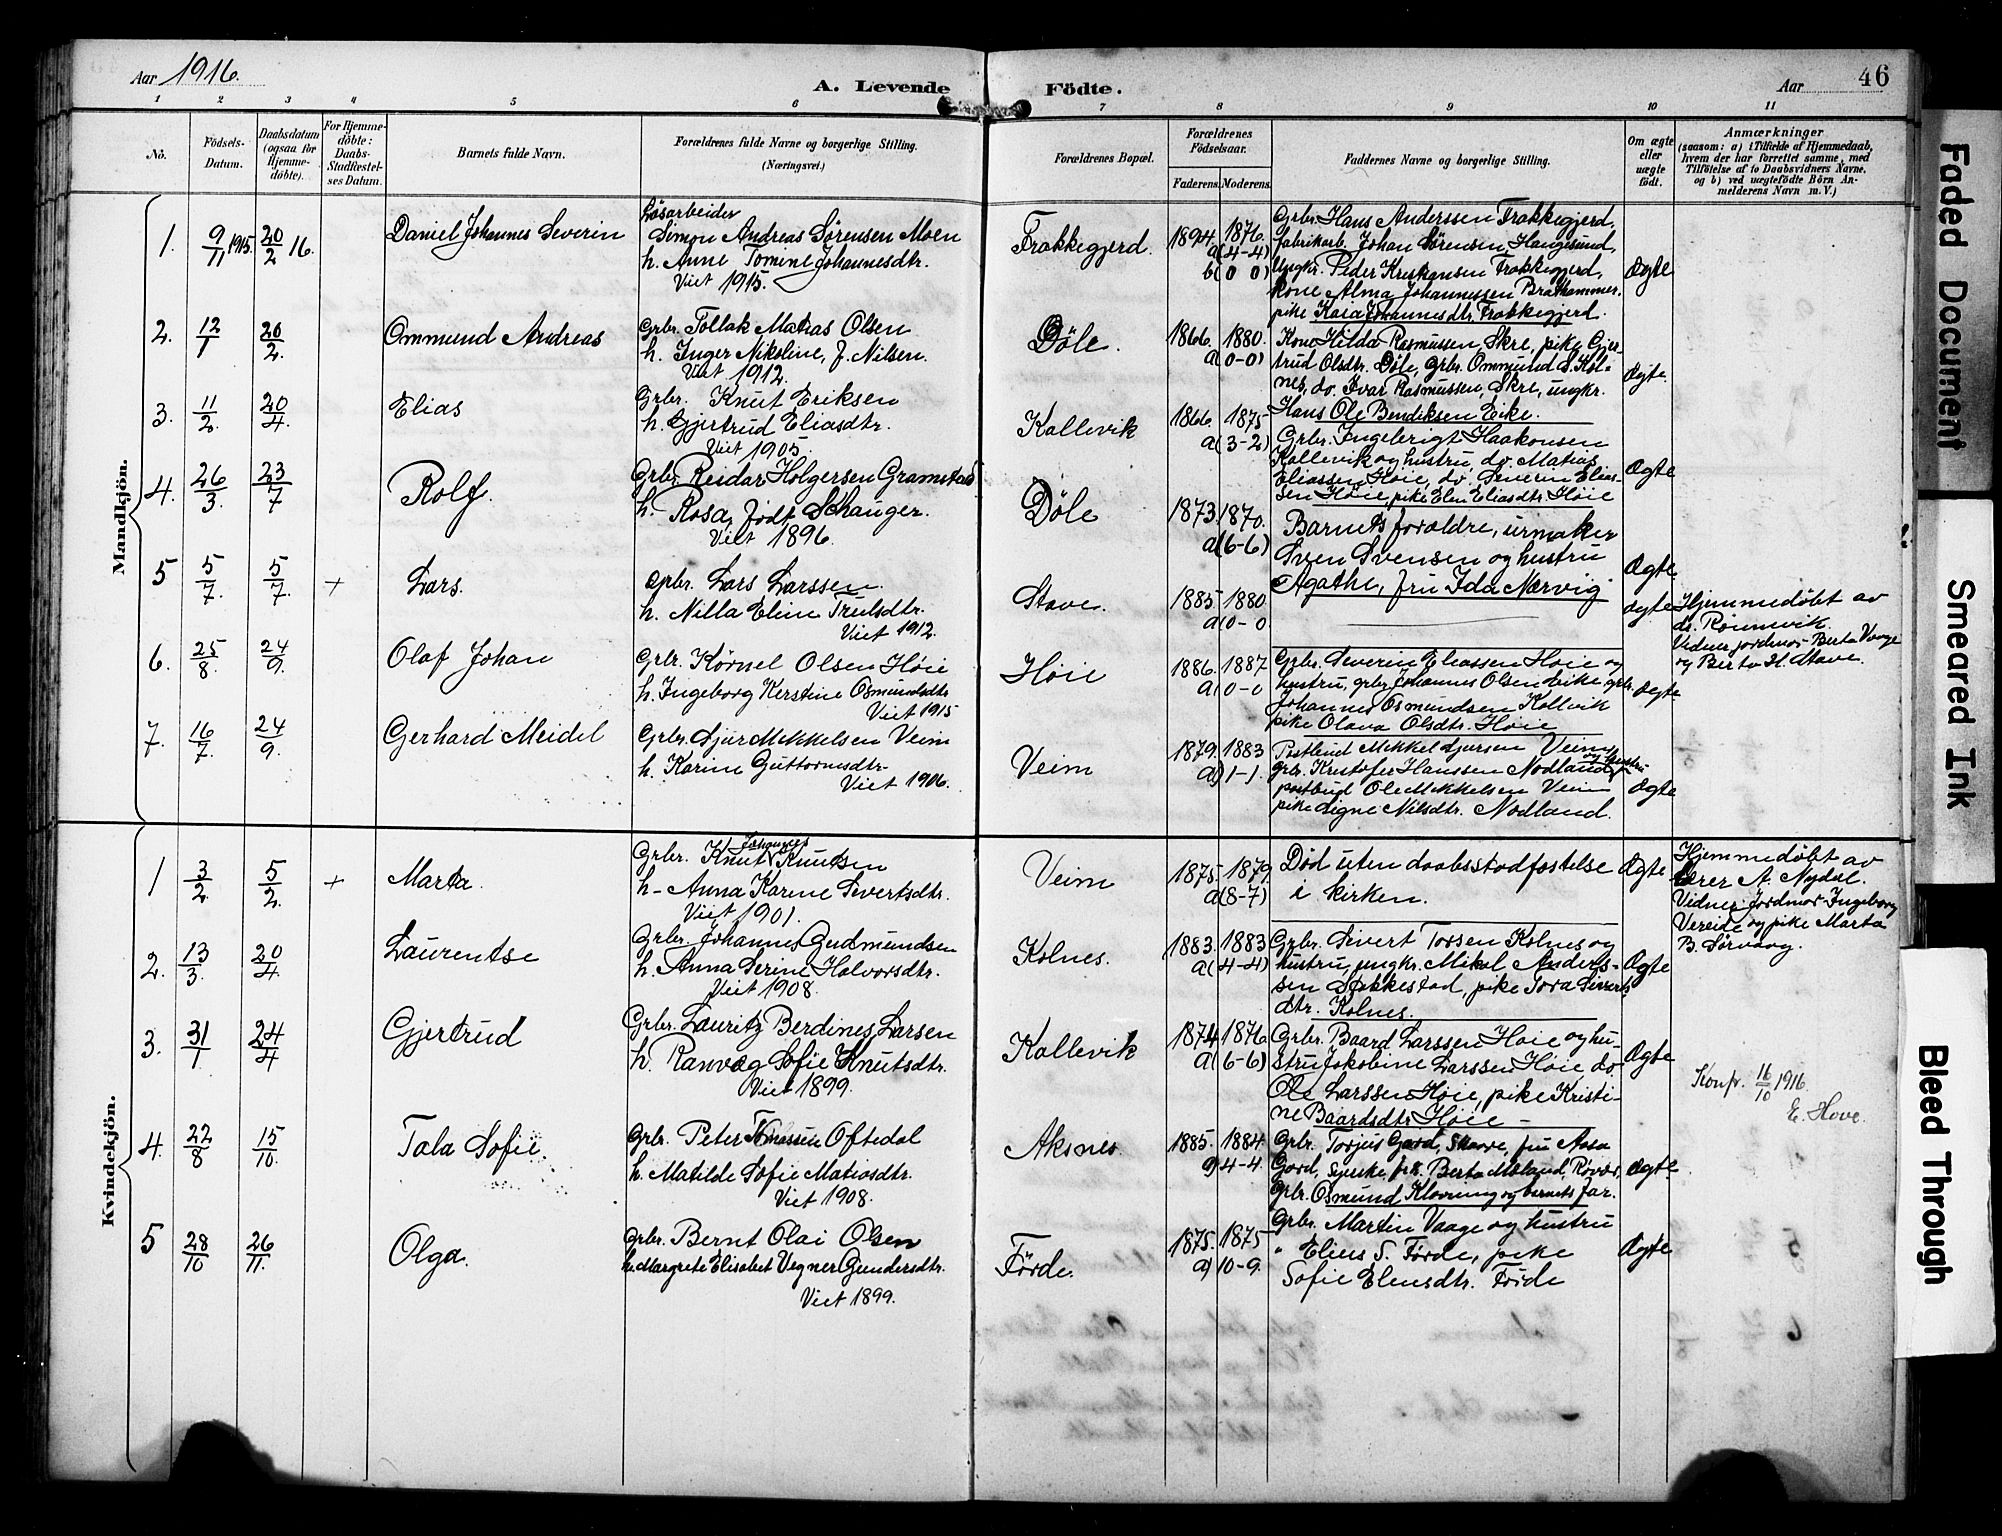 Aar 1916.
A. Levende Födte.
Aar 46
1 2 3 4 5 6 7 8 9 10 11
No.
Födsels-Datum.
Daabsdatum (ogsaa for Hjemme-döbte).
For Hjemme-döbte: Daabs-Stadfæstel-ses Datum.
Barnets fulde Navn.
Forældrenes fulde Navne og borgerlige Stilling.
(Næringsvei.)
Forældrenes Bopæl.
Forældrenes Födselsaar.
Faderens. Moderens.
Faddernes Navne og borgerlige Stilling.
Om ægte eller uægte født.
Anmærkninger
(saasom: a) i Tilfælde af Hjemmedaab, hvem der har forrettet samme, med Tilföielse af to Daabsvidners Navne, og b) ved uægtefödte Börn An-melderens Navn m. V.)
Mandkjön.
1. 9/11 1915. 20/2 16. Daniel Johannes Severin
Løsarbeider
Simon Andreas Sørensen Moen
h. Anne Tomine Johannesdtr.
Viet 1915.
Frakkegjerd. 1894. 1876.
a(4-4)
b(0 0)
Grbr. Hans Anderssen Frakkegjerd,
fabrikarb. Johan Sørensen Haugesund,
Ungkr. Peder Kristiansen Frakkegjerd,
kone Alma Johannessen Brathammer.
pike Kaia Johannesdtr. Frakkegjerd.
Ægte
2. 12/1 20/2. Ommund Andreas
Grbr. Tollak Matias Olsen
h. Inger Nikoline, f. Nilsen.
Viet 1912.
Döle. 1866. 1880.
a(0-0)
Kone Hilda Rasmussen, Skre, pike Gjer-
trud Olsdtr. Døle, grbr. Ommund S. Kol-
nes, do. Ivar Rasmussen, Skre, ungkr.
Hans Ole Bendiksen Eike.
Ægte.
3. 11/2. 20/4. Elias
Grbr. Knut Eriksen
h. Gjertrud Eliasdtr.
Viet 1905.
Kallevik 1866. 1875
a(3-2)
Grbr. Ingebrigt Haakonsen
Kallevik og hustru, do. Matias
Eliassen Høie, do. Severin Elias-
sen Høie, pike Elen Eliasdtr. Høie
Ægte
4. 26/3. 23/7 Rolf.
Grbr. Reidar Holgersen Gramstad
h. Rosa, født Schanger.
Viet 1896.
Döle 1873. 1870.
a(6-6)
Barnets forældre, urmaker
Sven Svensen og hustru
Agathe, fru Ida Nærvig
Ægte
5 5/7. 5/7. + Lars.
Grbr. Lars Larssen.
h. Nilla Elin Trulsdtr.
Viet 1912.
Stave. 1885 1880
a(0-0.
Ægte
Hjemmedøbt av
dr. Rønnevik.
Vidner jordmor Berta Vaage
og Berta H. Stave.
6. 25/8. 24/9. Olaf Johan
Grbr. Kornel Olsen Høie
h. Ingeborg Kerstine Osmundsdtr.
Viet 1915
Høie 1886. 1887
a(0-0
Grbr. Severin Eliassen Høie og
hustru, grbr. Johannes Olsen Eike, grbr.
Johannes Osmundsen Kallvik
pike Olava Olsdtr. Høie
Ægte
7. 16/7 24/9. Gerhard Meidel
Grbr. Sjur Mekkelsen Veim
h. Karine Guttormsdtr.
Viet 1906.
Veim 1879. 1883
a) 1-1.
Postbud Mekkel Sjursen Veim
og hustru
grbr. Kristofer Hanssen Nodland,
postbud Ole Mekkelsen Veim
pike Signe Nilsdtr. Nodland.
Ægte
Kvindekjön.
1 3/2. 5/2. + Marta.
Johannes
Grbr. Knut Knutsen
h- Anna Karine Sivertsdtr.
Viet 1901.
Veim 1875. 1879.
a(8-7)
Død uten daabsstadfæstelse
i kirken.
Ægte
Hjemmedøbt av
lærer A. Nydal.
Vidner: Jordmor Ingeborg
Vereide og pike Marta
B. Sørvaag.
2. 13/3. 20/4. Laurentse
Grbr. Johannes Gudmundsen
h. Anna Serine Halvorsdtr.
Viet 1908.
Kolnes. 1883. 1883
a(4-4)
Grbr. Sivert Tossen Kolnes og
hustru, ungkr. Mikal Anders-
sen Stakkestad, pike Tora Siverts
dtr. Kolnes.
Ægte
3. 31/1 24/4 Gjertrud
Grbr. Lauritz Berdines Larsen
h. Ranvæg Sofie Knutsdtr.
Viet 1899.
Kallevik 1874 1876
a(6-6)
Grbr. Baard Larssen Høie og hu-
stru Jakobine Larssen Høie do
Ole Larssen Høie, pike Kristi-
ne Baardsdtr. Høie -
Ægte
Konfr. 16/10 1916.
E. Hove.
4 22/8 15/10. Tala Sofie.
Grbr. Peter Tomassen Oftedal
h. Matilde Sofie Matiasdtr.
Viet 1908.
Aksnes. 1885. 1884.
a) 4-4.
Grbr. Torjus Gard, Skaare, fru Aasa
Gard, Berta Mæland, Røvær,
Grbr. Osmund Klovning og barnets far.
Ægte.
5 28/10 26/11. Olga.
Grbr. Bernt Olai Olsen
h. Margrete Elisabet Vegner Gundersdtr.
Viet 1899.
Förde. 1875. 1875
a) 10-9.
Grbr. Martin Vaage og hustru
" Elius S. Førde, pike
Sofie Eliusdtr. Förde
Ægte
Faded Document
Smeared Ink
Bleed Through